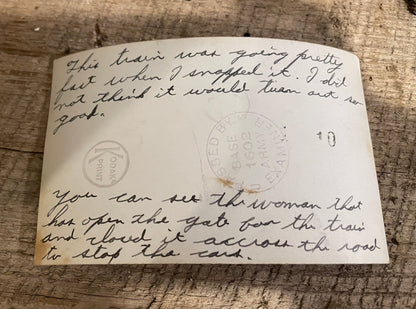 This train was going pretty
fast when I snapped it. I did
not think it would turn out so
good.
PASSED BY
BASE
1602
ARMY
EXAMINER
10
KODAK
PRINT
You can see the woman that
has open the gate for the train
and closed it accross the road
to stop the cars.